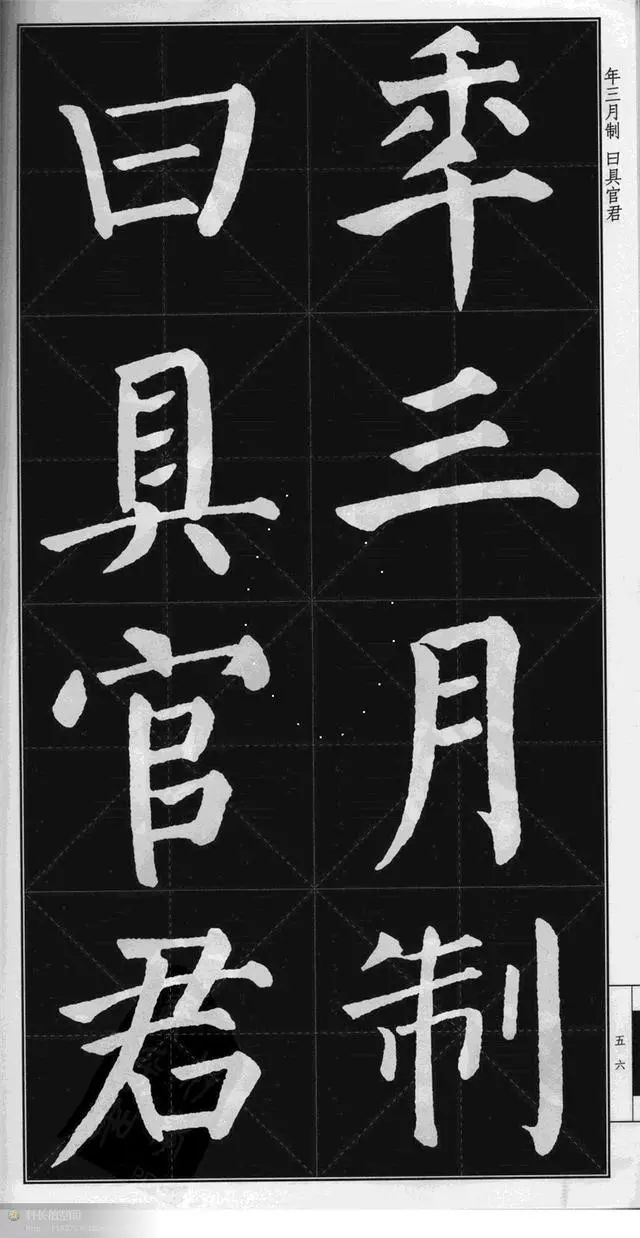 年三月制
曰具官君
年三月制 曰具官君
五六